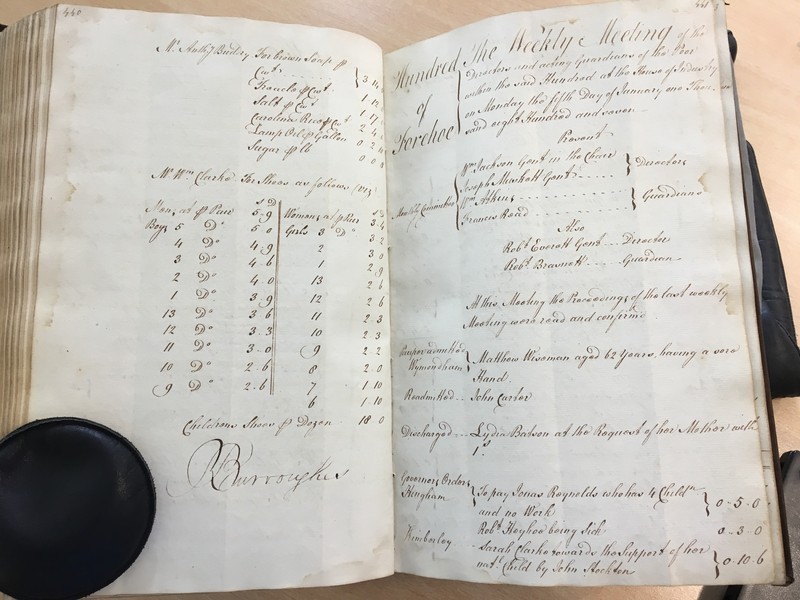 440
Mr. Anthy. Budery For brown Soap ⅌ Cwt.
Treacle ⅌ Cwt.
Salt ⅌ Cwt. 1.17
Carolina Rice ⅌ Cwt. 2.4
Lamp Oil ⅌ Gallon 0.2
Sugar ⅌ lb 0.0
Mr. Wm. Clarke For Shoes as follows (viz)
s D s D
Mens, at ⅌ Pair 5-9 Womens, at ⅌ Pair 3-4
Boys 5 Do. 5.0 Girls 3 Do. 3 2
4 Do. 4.9 2 3 0
3 Do. 4-6 1 2 9
2 Do. 4.0 13 2 6
1 Do. 3 9 12 2 6
13 Do. 3 6 11 2 3
12 Do. 3.3 10 2 3
11 Do. 3-0 9 2 2
10 Do. 2-6 8 2 0
9 Do. 2.6 7 1.10
6 1.10
Childrens Shoes ⅌ Dozen 18 0
Burroughes
441
Hundred of Forehoe
The Weekly Meeting of the
Directors and acting Guardians of the Poor
within the said Hundred at the House of Industry
on Monday the fifth Day of January one Thou-
sand eight Hundred and seven
Present
Wm. Jackson Gent. in the Chair
Joseph Muskett Gent. Directors
Monthly Committee
Wm. Athen
Francis Road Guardians
Also
Robt. Everett Gent. Director
Robt. Brasnett Guardian
At this Meeting the Proceedings of the last weekly
Meeting were read and confirmd
Pauper admitted
Wymondham
Matthew Wiseman aged 62 Years, having a sore
Hand.
Readmitted John Carter
Discharged Lydia Batson at the Request of her Mother with
1s.
Governors Orders
Hingham
To pay Jonas Reynolds who has 4 Childn.
and no Work 0-5-0
Robt. Heyhoe being Sick 0-3-0
Kimberley
Sarah Clarke towards the Support of her
natl. Child by John Stockton 0.10.6